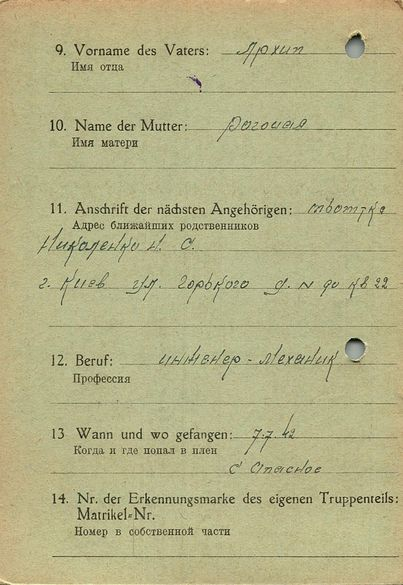 9. Vorname des Vaters: Архип
Имя отца
10. Name der Mutter: Рогоцая
Имя матери
11. Anschrift der nächsten Angehörigen:
Адрес ближайших родственников
Николенко Н. С.
г. Киев ул. Горького д. N кв 22
12. Beruf: инженер - механик
Профессия
13 Wann und wo gefangen: 7.7.42
Когда и где попал в плен
с Спасное
14. Nr. der Erkennungsmarke des eigenen Truppenteils:
Matrikel=Nr.
Номер в собственной части